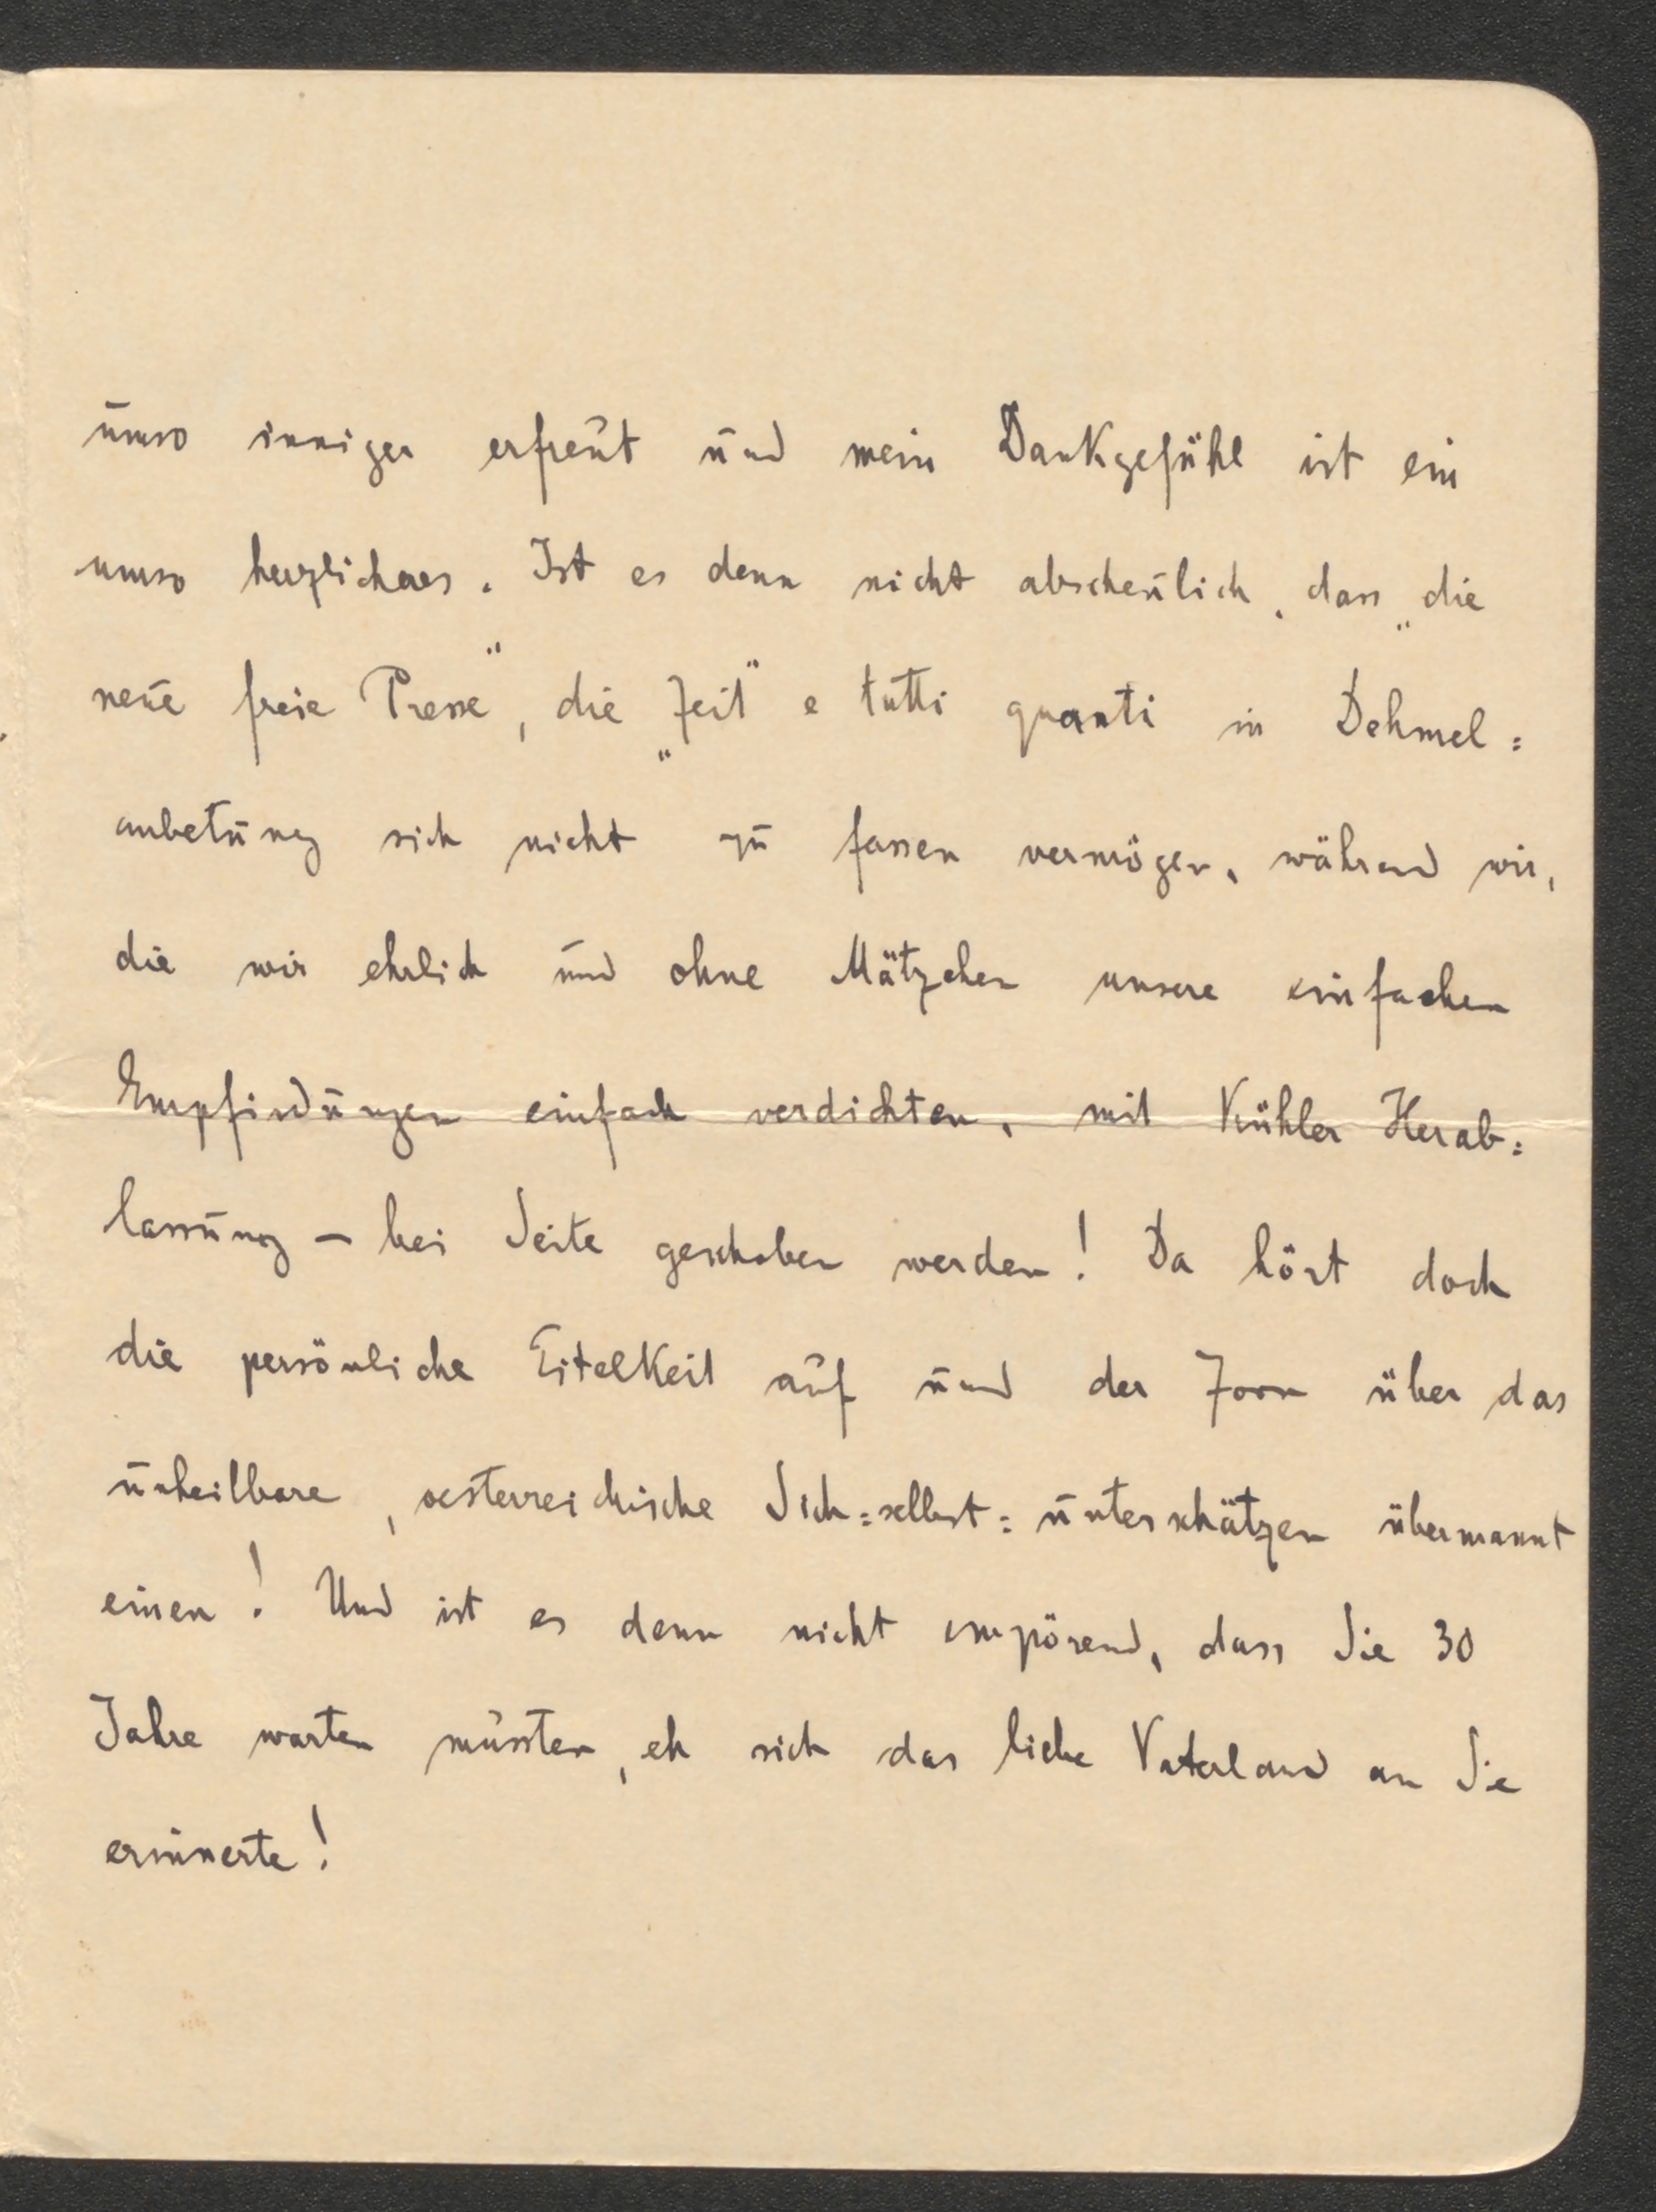 umso inniger erfreut und mein Dankgefühl ist ein
umso herzlicheres. Ist es denn nicht abscheulich, dass „die
neue freie Presse“, die „Zeit“ e tutti quanti in Dehmel=
anbetung sich nicht zu fassen vermögen, während wir,
die wir ehrlich und ohne Mätzchen unsere einfachen
Empfindungen einfach verdichten, mit kühler Herab=
lassung – bei Seite geschoben werden! Da hört doch
die persönliche Eitelkeit auf und der Zorn über das
unheilbare, oesterreichische Sich=selbst=unterschätzen übermannt
einen! Und ist es denn nicht empörend, dass Sie 30
Jahre warten mussten, eh sich das liebe Vaterland an Sie
erinnerte!